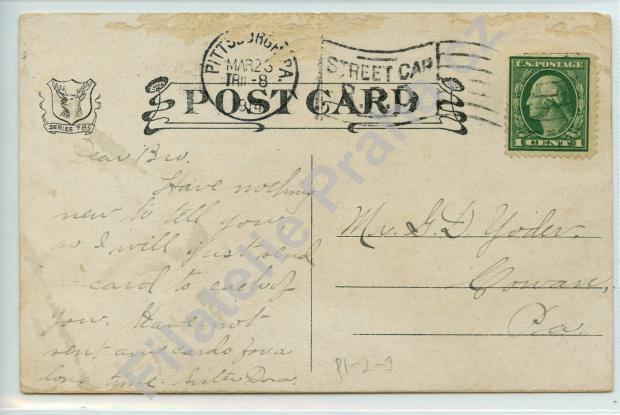 PITTSBURGH, PA.
MAR 26
TRII-8
1914
STREET CAR
U.S. POSTAGE
1 CENT 1
POST CARD
SERIES 785
Dear Bro.
Have nothing
new to tell you
so I will just send
a card to each of
you. Have not
sent any cards for a
long time. Sister Dora.
Mr. G. D. Yoder.
Cowan,
Pa.
P1-2-3
Filatelie Praha.cz